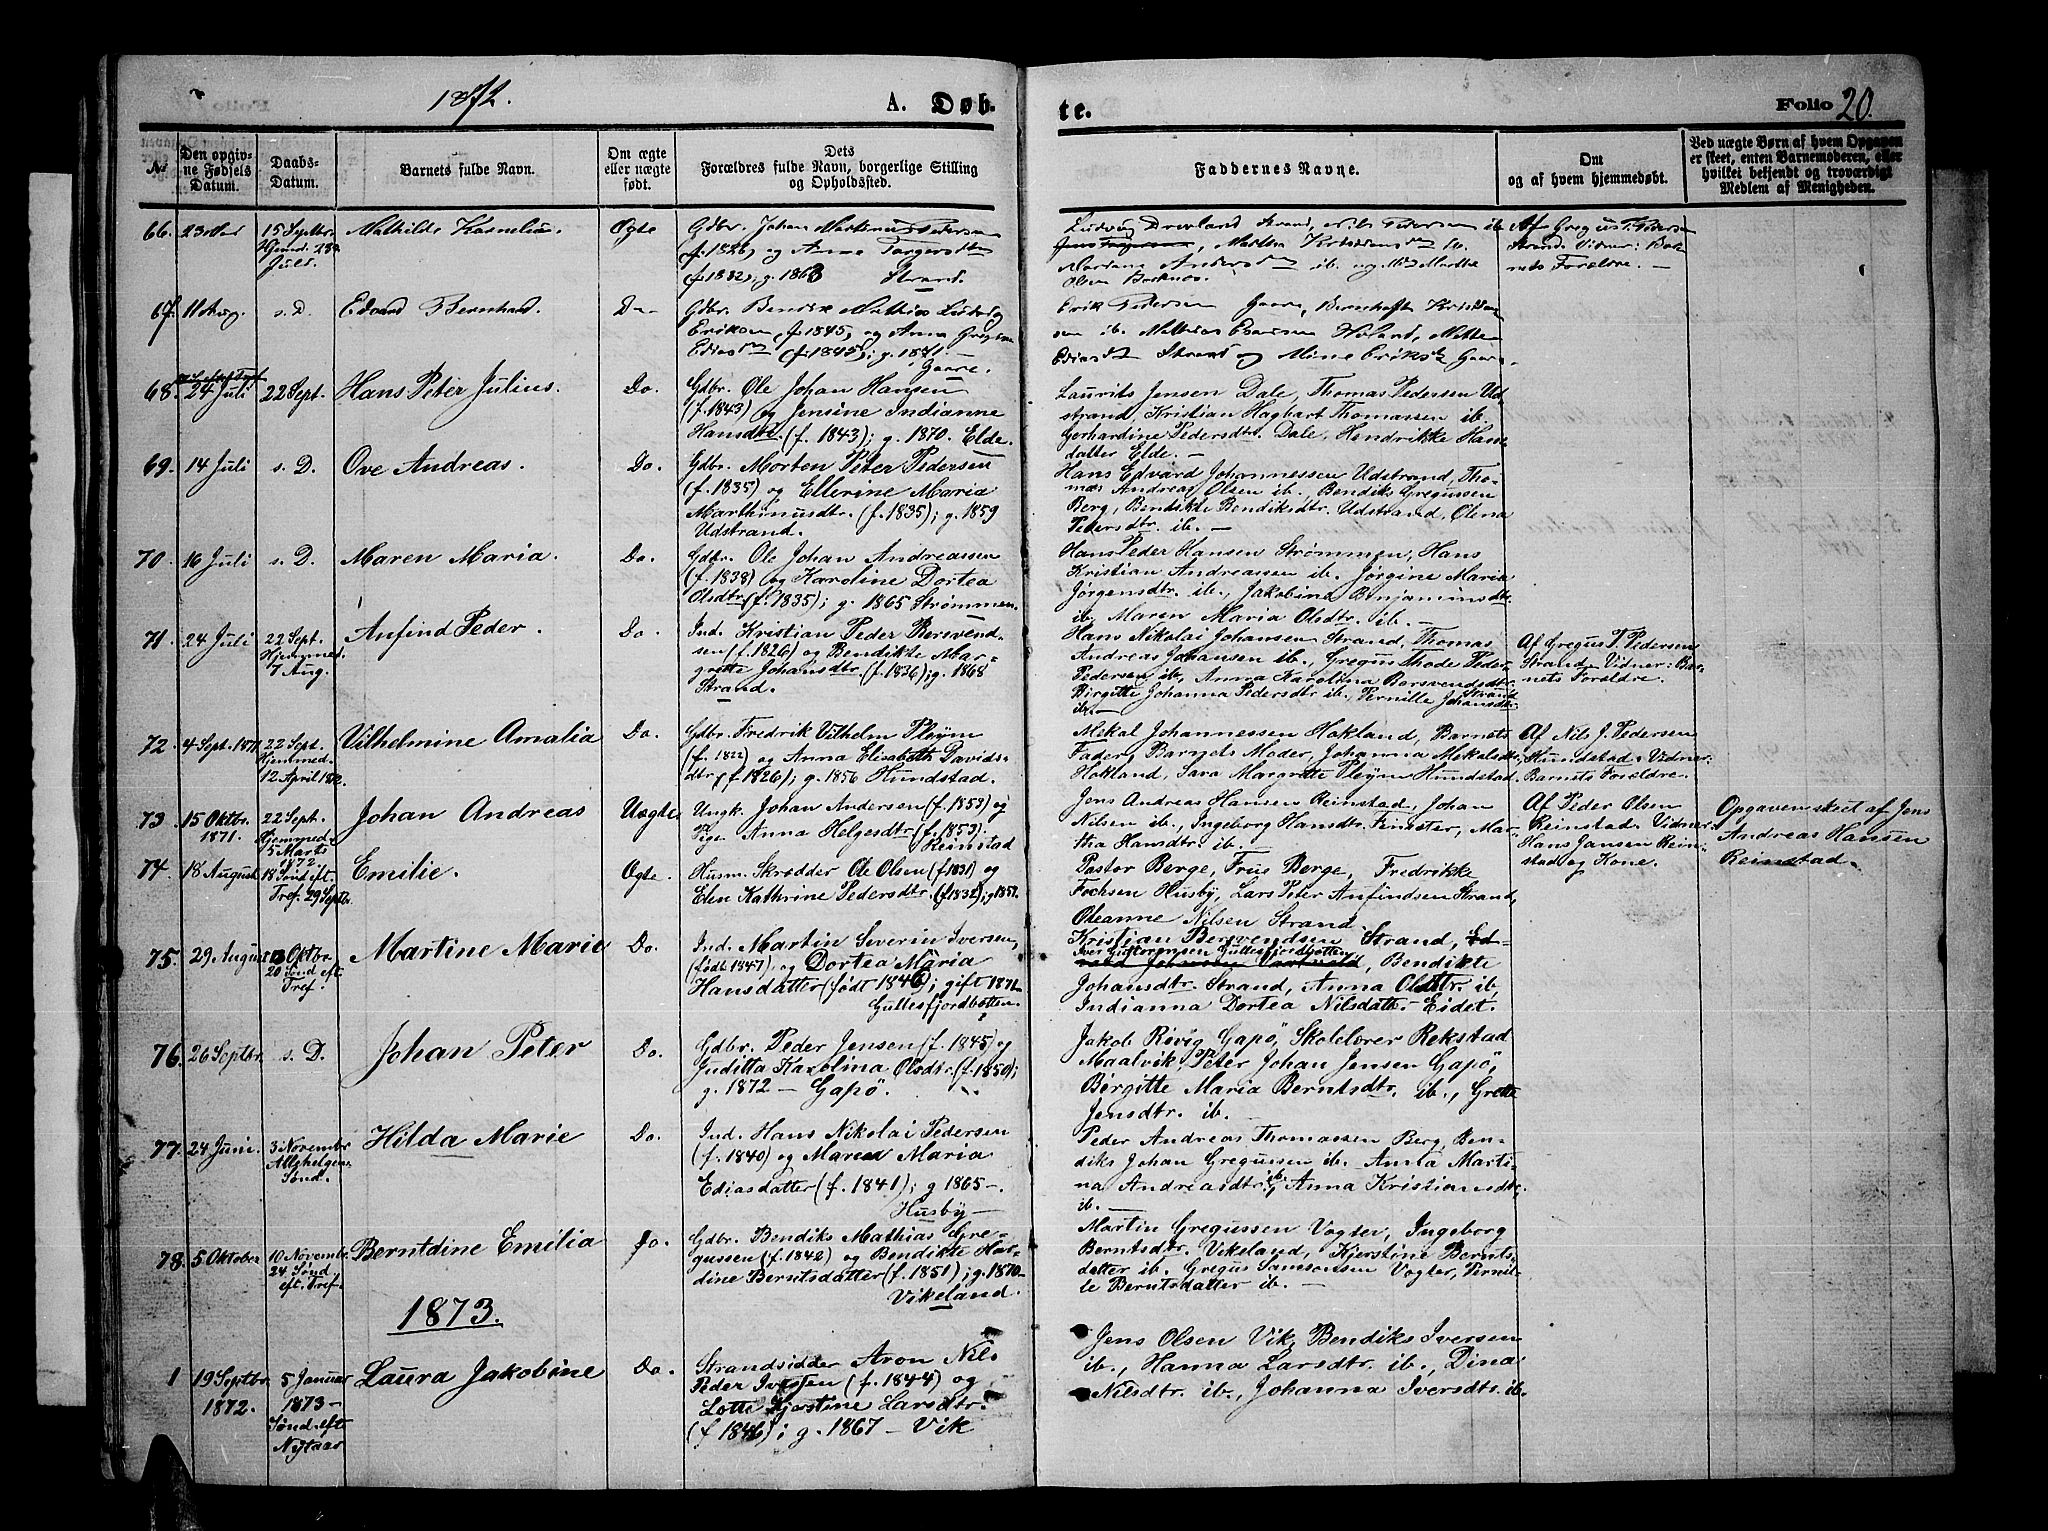 1872.
A. Døb-
te.
Folio 20.
№
Den opgiv-
ne Fødsels
Datum.
Daabs-
Datum.
Barnets fulde Navn.
Om ægte
eller uægte
født.
Dets
Forældres fulde Navn, borgerlige Stilling
og Opholdssted.
Faddernes Navne.
Om
og af hvem hjemmedøbt.
Ved uægte Børn af hvem Opgaven
er skeet, enten Barnemoderen, eller
hvilket bekjendt og troværdigt
Medlem af Menigheden.
66.
15 Septbr.
Hjemd. 28
Juli.
Mathilde Kornelia.
Ægte
Gdbr. Johan Pedersen
(f. 1826) og Anne
(f. 1832), g. 1863 Strand.
Ludvig Strand, Nils Pedersen ib.
ib. og
Olsen
Af Gregus T. Pedersen
Strand. Vidner: Bar-
nets Forældre. –
67.
11 Aug.
s. D.
Edvard Bernhard.
Do
Gdbr. Bendix Mathias Ludvig
Eriksen (f. 1845) og Anna
(f. 1845); g. 1871. –
Gaare.
Erik Pedersen Gaare,
ib. Mathias Hokland, Mette
Strand og Mine Eriksdtr. Gaare.
68.
24 Juli
22 Sept.
Hans Peter Julius.
Do.
Gdbr. Ole Johan Hansen
(f. 1843) og Jensine Indianne
Hansdtr. (f. 1843); g. 1870. Elde.
Laurits Jensen Dale, Thomas Pedersen Ud-
strand, Kristian Hagbart Thomassen ib.
Gerhardine Pedersdtr. Dale, Hendrikke Hans-
datter Elde. –
69.
14 Juli
s. D.
Ove Andreas.
Do.
Gdbr. Morten Peter Pedersen
(f. 1835) og Ellerine Maria
Marthinusdtr. (f. 1835); g. 1859
Udstrand.
Hans Edvard Johannessen Udstrand, Tho-
mas Andreas Olsen ib., Bendiks Gregussen
Berg, Bendikte Bendiksdtr. Udstrand, Olena
Pedersdtr. ib. –
70.
16 Juli
s. D.
Maren Maria.
Do.
Gdbr. Ole Johan Andreassen
(f. 1838) og Karoline Dortea
Olsdtr. (f. 1835); g. 1865 Strømmen.
Hans Peder Hansen Strømmen, Hans
Kristian Andreassen ib. Jørgine Maria
Jørgensdtr. ib., Jakobina Benjaminsdtr.
ib., Maren Maria Olsdtr. ib. –
71.
24 Juli
22 Sept.
Hjemmed.
7 Aug.
Anfind Peder.
Do.
Ind. Kristian Peder Bersvend-
sen (f. 1826) og Bendikte Mar-
grete Johansdtr. (f. 1836); g. 1868
Strand.
Hans Nikolai Johansen Strand, Thomas
Andreas Johansen ib., Gregus Thode Peder
Pedersen ib., Anna Karolina Barsvendsdtr.
Birgitte Johanna Pedersdtr. ib., Pernille Johansdtr.
ib. –
Af Gregus T. Pedersen
Strand. Vidner: Bar-
nets Forældre.
72.
4 Sept. 1871
22 Sept.
Hjemmed.
12 April 1872.
Vilhelmine Amalia
Do.
Gdbr. Fredrik Vilhelm Pleym
(f. 1822) og Anna Elisabeth Davids-
dtr. (f. 1826); g. 1856 Hundstad.
Mekal Johannessen Hokland, Barnets
Fader, Barnets Moder, Johanna Mekalsdtr.
Hokland, Sara Margrete Pleym Hundstad.
Af Nils J. Pedersen
Hundstad. Vidner:
Barnets Forældre.
73.
15 Oktbr.
1871.
22 Sept.
Hjemmed.
5 Marts
1872.
Johan Andreas
Uægte
Ungk. Johan Andersen (f. 1853) og
Pige Anna Helgesdtr. (f. 1853).
Reinstad
Jens Andreas Hansen Reinstad, Johan
Nilsen ib., Ingeborg Hansdtr. Finsæter, Mar-
tha Hansdtr. ib.
Af Peder Olsen
Reinstad. Vidner:
Hans Jansen Rein-
stad og Kone.
Opgaven skeet af Jens
Andreas Hansen
Reinstad.
74.
18 August
18 Sønd. eft.
Tref. 29 Septbr.
Emilie.
Ægte.
Husm. Skrædder Ole Olsen (f. 1831) og
Elen Kathrine Pedersdtr. (f. 1832); g. 1857.
Pastor Berge, Frue Berge, Fredrikke
Fochsen Husby, Lars Peter Anfindsen Strand,
Oleanne Nilsen Strand.
75.
29 August
13 Oktbr.
20 Sønd. eft.
Tref.
Martine Marie
Do.
Ind. Martin Severin Iversen,
(født 1847), og Dortea Maria
Hansdatter (født 1846); gift 1871
Gullesfjordbotten.
Kristian Bersvendsen Strand, Ed-
Iver Guttormsen Gullesfjordbotten
Bendikte
Johansdtr. Strand, Anna Olsdtr. ib.,
Indianna Dortea Nilsdatter Eidet.
76.
26 Septbr.
s. D.
Johan Peter
Do.
Gdbr. Peder Jensen (f. 1845) og
Juditta Karolina Olsdtr. (f. 1850);
g. 1872 – Gapø.
Jakob Røvig Gapø, Skolelærer Rekstad
Maalvik, Peter Johan Jensen Gapø,
Birgitte Maria Berntsdtr. ib., Grete
Jensdtr. ib. –
77.
24 Juni.
3 Novembr.
Allehelgens
Sønd.
Hilda Marie
Do.
Ind. Hans Nikolai Pedersen
(f. 1840) og Maren Maria
Ediasdatter (f. 1841); g 1865 –.
Husby –
Peder Andreas Thomassen Berg, Ben-
diks Johan Gregussen ib. Anna Marti-
na Andreasdtr. ib., Anna Kristiansdtr.
ib. –
78.
5 Oktober
10 Novembr.
24 Sønd.
eft. Tref.
Berntdine Emilia
Do.
Gdbr. Bendiks Mathias Gre-
gussen (f. 1842) og Bendikte Har-
dine Berntsdatter (f. 1851); g. 1870 –
Vikeland.
Martin Gregussen Vogter, Ingeborg
Berntsdtr. Vikeland, Kjerstine Bernts-
datter ib. Gregus Samsonsen Vogter, Pernil-
le Berntsdatter ib. –
1873.
1
19 Septbr.
1872.
5 Januar
1873 –
Sønd. eft
Nytaar
Laura Jakobine
Do.
Strandsidder Aron Nils
Peder Iversen (f. 1844) og
Lotte Kjerstine Larsdtr.
(f 1846); g. 1867 – Vik
Jens Olsen Vik, Bendiks Iversen
ib., Hanna Larsdtr. ib., Dina
Nilsdtr. ib., Johanna Iversdtr. ib.